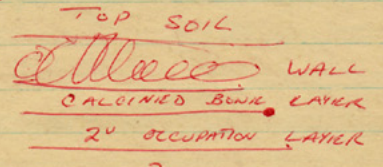 TOP SOIL
WALL
CALCINIED BONE LAYER
2" OCCUPATION LAYIER